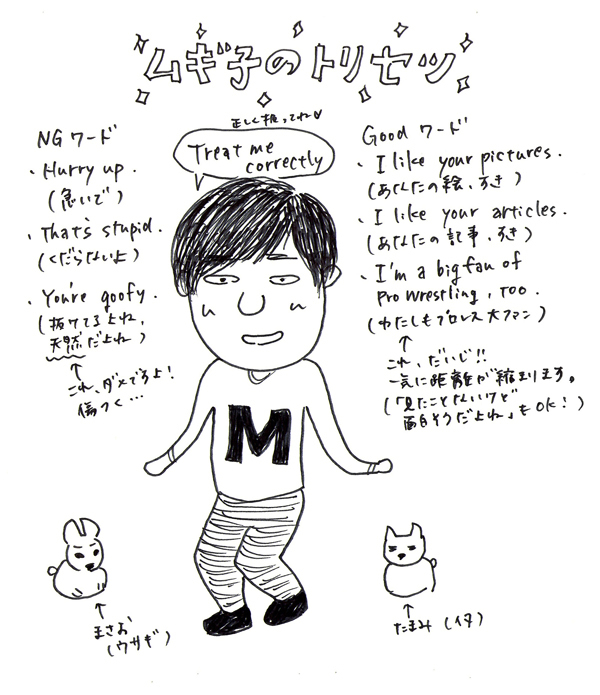 ムギ子のトリセツ
正しく扱ってね♡
Treat me
correctly
NG ワード
・Hurry up.
(急いで)
・That's stupid.
(くだらないよ)
・You're goofy.
(抜けてるよね、
天然だよね)
↑
これ、ダメですよ!
傷つく…
Good ワード
・I like your pictures.
(あなたの絵、すき)
・I like your articles.
(あなたの記事、すき)
・I'm a big fan of
pro wrestling, too.
(わたしもプロレス大ファン)
↑
これ、だいじ!!
一気に距離が縮まります。
(「見たことないけど
面白そうだよね」もOK!)
M
↑
まさお
(ウサギ)
↑
たまみ (イヌ)